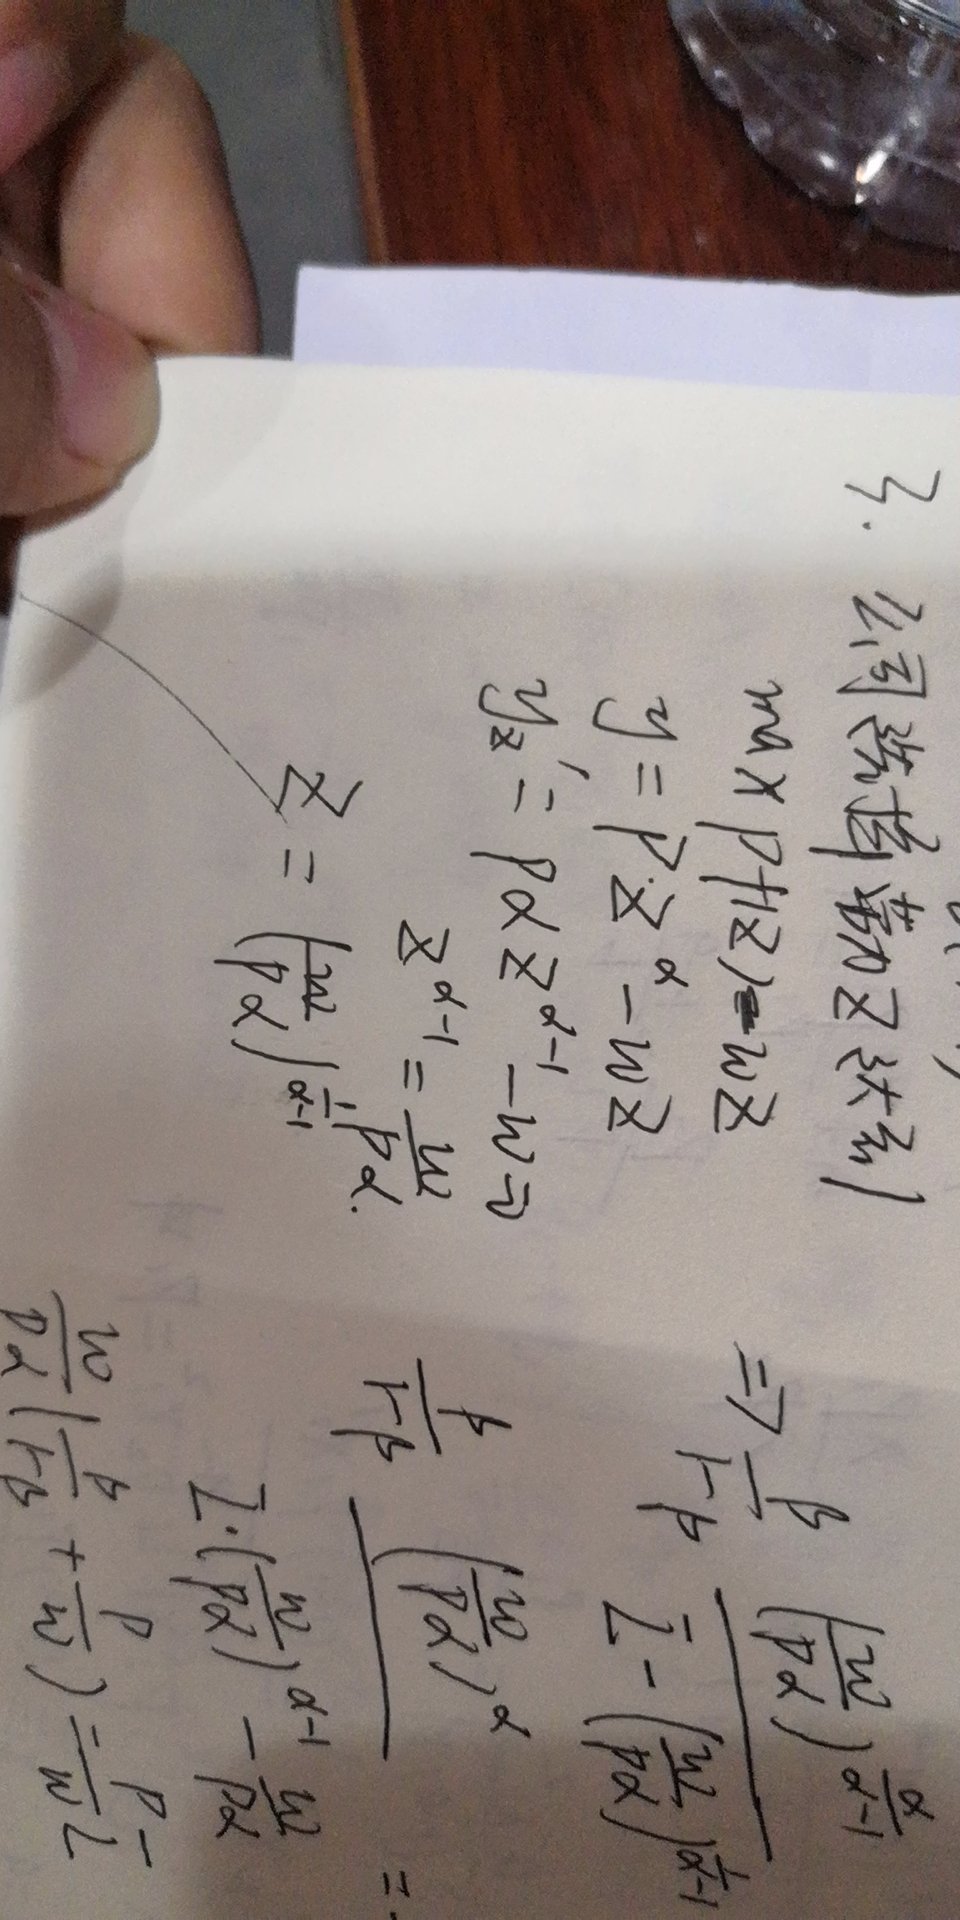 3. 公司给指劳动Z约利
max pf(z)-wz
y = p·z^α - wz
y_z' = pαz^{α-1} - w = 0
z^{α-1} = \frac{w}{pα}.
z = (\frac{w}{pα})^{\frac{1}{α-1}}
=> \frac{β}{1-β} \frac{(\frac{w}{pα})^{\frac{α}{α-1}}}{\bar{L} - (\frac{w}{pα})^{\frac{1}{α-1}}}
\frac{β}{1-β} \frac{(\frac{w}{pα})^α}{\bar{L}·(\frac{w}{pα})^{α-1} - \frac{w}{pα}} =
\frac{w}{pα}(\frac{β}{1-β} + \frac{p}{w}) = \frac{p}{w}\bar{L}